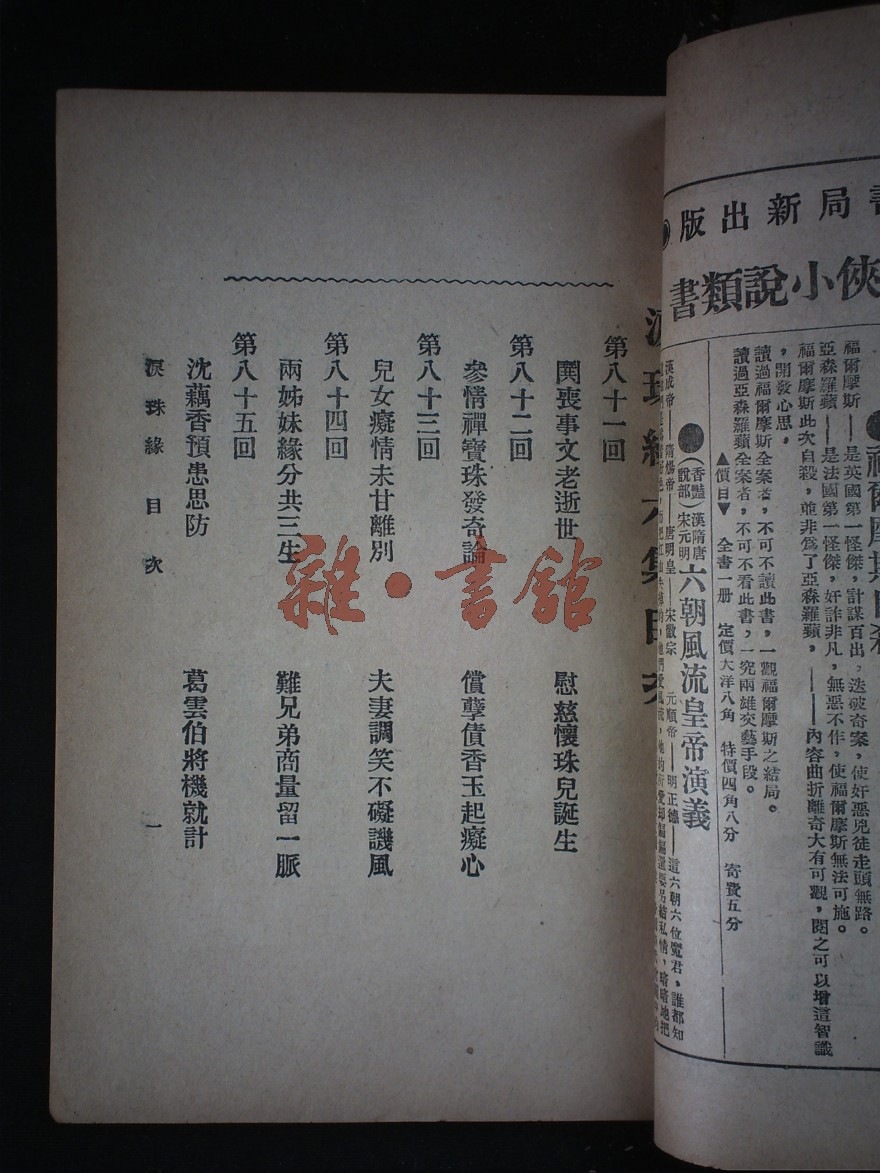 書局新出版
俠小說類書
福爾摩斯——是英國第一怪傑，計謀百出，迭破奇案，使奸惡兇徒走頭無路。
亞森羅蘋——是法國第一怪傑，奸詐非凡，無惡不作，使福爾摩斯無法可施。
福爾摩斯此次自殺，並非為了亞森羅蘋，——內容曲折離奇大有可觀，閱之可以增這智識
，開發心思，
讀過福爾摩斯全案者，不可不讀此書，一觀福爾摩斯之結局。
讀過亞森羅蘋全案者，不可不看此書，一究兩雄交藝手段。
▲價目▼ 全書一册 定價大洋八角 特價四角八分 寄費五分
●（香艷說部）漢隋唐宋元明六朝風流皇帝演義
漢成帝——隋煬帝——唐明皇——宋徽宗——元順帝——明正德——這六朝六位覽君，誰都知
淚珠緣六集目次
第八十一回
閔喪事文老逝世 慰慈懷珠兒誕生
第八十二回
參情禪寶珠發奇論 償孽債香玉起癡心
第八十三回
兒女癡情未甘離別 夫妻調笑不礙譏風
第八十四回
兩姊妹緣分共三生 難兄弟商量留一脈
第八十五回
沈藕香預患思防 葛雲伯將機就計
淚珠緣 目次 一
雜·書館